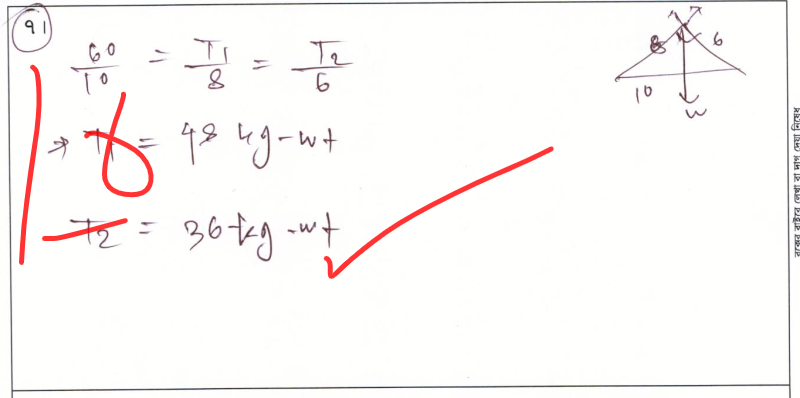 91
60/10 = T1/8 = T2/6
→ T1 = 48 kg-wt
T2 = 36 kg-wt
8 6
10
W
বক্সের বাইরে লেখা বা দাগ দেয়া নিষেধ